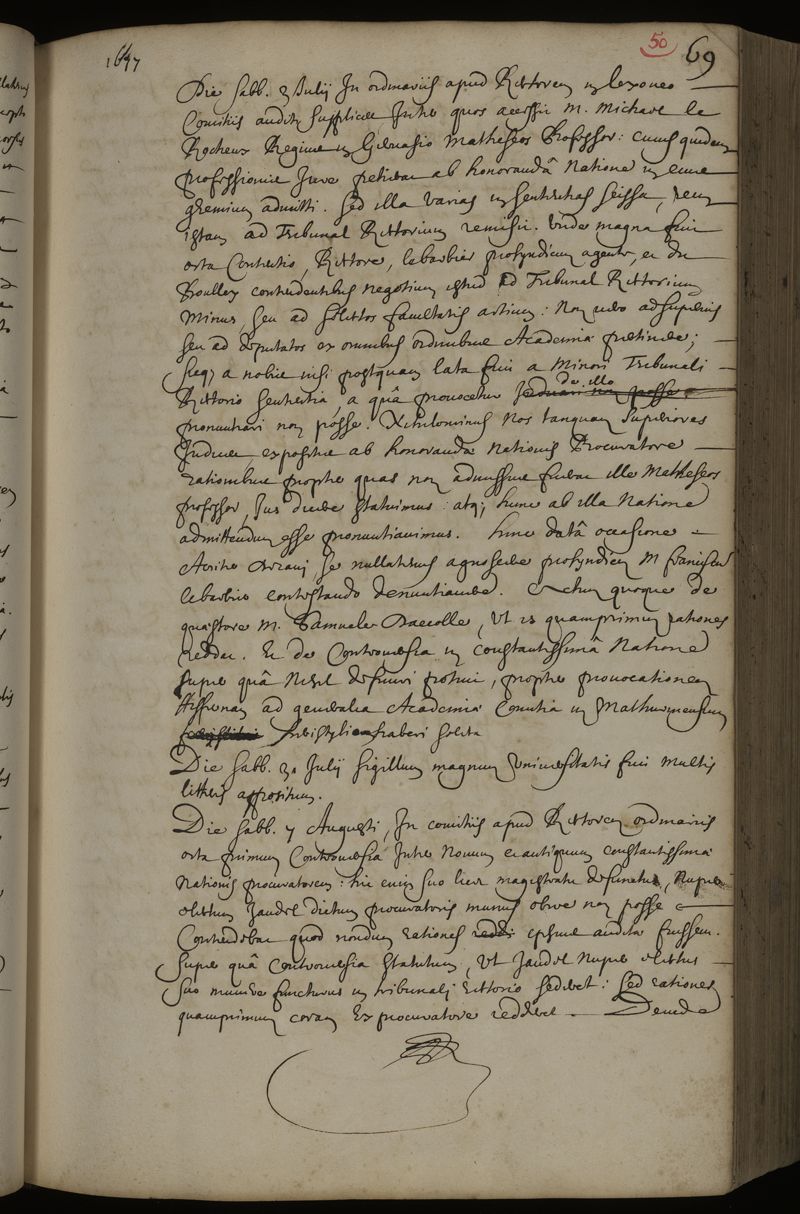 1647
50
69
Die Sabb. 3 Julij In ordinariis apud Rectorem in lexoueo
Comitiis audita supplicia Inter quos accessit M. Michael le
Rocheux Regius in Geruasio Matheseos Professor: cuius quidem
professionis Jure petebat ab honoranda Natione in eius
gremium admitti. Sed illa varias in sententias scissa, rem
istam ad Tribunal Rectorium remisit. Vnde magna fuit
orta Contentio, Rectore, lebarbier prosyndicum agente, et Du
Boulley contendentibus negotium istud ad Tribunal Rectorium
minus, seu ad solitos facultatis artium: Non vero ad superius
seu ad deputatos ex omnibus ordinibus Academiæ pertinere;
sicq; a nobis nisi postquam lata fuit a Minori Tribunali
Rectorio sententia, a quâ prouocetur
de illo
pronuntiari non posse. Nihilominus Nos tanquam Superiores
Judices expositis ab honorandæ Nationis Procuratore
rationibus propter quas non admissus fuerat ille Matheseos
professor, Jus dicere statuimus: atq; hunc ab illa Natione
admittendum esse pronuntiauimus. hinc datâ occasione
se nullatenus agnoscere prosyndicum M franciscum
lebarbier contestando denuntiauere. Actum quoque de
quæstore M. Samuele Dacolle, Vt is quamprimum rationes
reddat. Et de Controuersia in constantissimâ Natione
super quâ Nihil definiri potuit, propter prouocationem
ad generalia Academiæ Comitia in Mathurinensium
haberi solita
Die Sabb. 30 Julij sigillum magnum Vniuersitatis fuit multis
litteris appositum.
Die Sabb. 7 Augusti, In comitiis apud Rectorem ordinariis
orta primum Controuersia Inter Nouum et antiquum constantissimæ
Nationis procuratorem: hic enim suo licet magistratu defunctus, Nuper
electum Jandel dictum procuratoris munus obire non posse
Contendebat quod nondum rationes ipsius auditæ fuissent.
Super quâ Controuersia statutum, Vt Jandel Nuper electus
suo munere functurus in tribunali rectorio sederet: sed rationes
quamprimum coram Ex procuratore redderet. Deinde